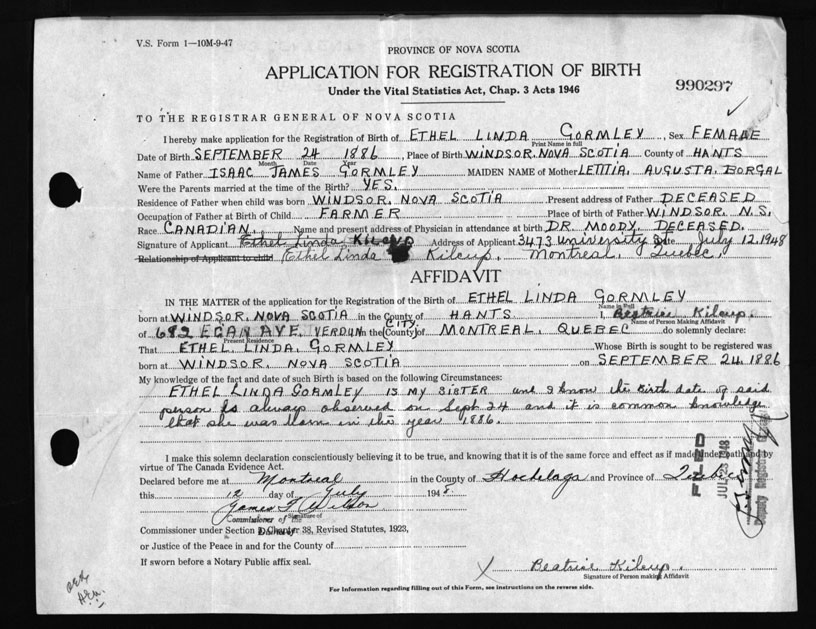 V.S. Form 1—10M-9-47
PROVINCE OF NOVA SCOTIA
APPLICATION FOR REGISTRATION OF BIRTH
Under the Vital Statistics Act, Chap. 3 Acts 1946
990297
TO THE REGISTRAR GENERAL OF NOVA SCOTIA
I hereby make application for the Registration of Birth of ETHEL LINDA GORMLEY, Sex FEMALE
Print Name in full
Date of Birth SEPTEMBER 24 1886, Place of Birth WINDSOR, NOVA SCOTIA County of HANTS
Month Date Year
Name of Father ISAAC JAMES GORMLEY MAIDEN NAME of Mother LETITIA, AUGUSTA, BORGAL
Were the Parents married at the time of the Birth? YES.
Residence of Father when child was born WINDSOR, NOVA SCOTIA Present address of Father DECEASED
Occupation of Father at Birth of Child FARMER Place of birth of Father WINDSOR, N.S.
Race CANADIAN Name and present address of Physician in attendance at birth DR. MOODY, DECEASED.
Signature of Applicant Ethel Linda Kilcup Address of Applicant 3473 University St Date July 12, 1948
Relationship of Applicant to child Ethel Linda Kilcup. Montreal, Quebec.
AFFIDAVIT
IN THE MATTER of the application for the Registration of the Birth of ETHEL LINDA GORMLEY
Name in Full
born at WINDSOR, NOVA SCOTIA in the County of HANTS I, Beatrice Kilcup.
Name of Person Making Affidavit
of 682 EGAN AVE, VERDUN in the CITY County of MONTREAL, QUEBEC do solemnly declare:
Present Residence
That ETHEL, LINDA, GORMLEY Whose Birth is sought to be registered was
born at WINDSOR, NOVA SCOTIA on SEPTEMBER 24, 1886
My knowledge of the fact and date of such Birth is based on the following Circumstances:
ETHEL LINDA GORMLEY IS MY SISTER and I know the birth date of said
person is always observed on Sept 24 and it is common knowledge
that she was born in the year 1886.
I make this solemn declaration conscientiously believing it to be true, and knowing that it is of the same force and effect as if made under oath and by
virtue of The Canada Evidence Act.
Declared before me at Montreal in the County of Hochelaga and Province of Quebec
this 12 day of July 1948.
James F. Wilson
Signature of
Commissioner of the
Commissioner under Section Chapter 38, Revised Statutes, 1923,
or Justice of the Peace in and for the County of
If sworn before a Notary Public affix seal.
Beatrice Kilcup.
Signature of Person making Affidavit
For Information regarding filling out of this Form, see instructions on the reverse side.
FILED
JUL 23 1948
Deputy Registrar